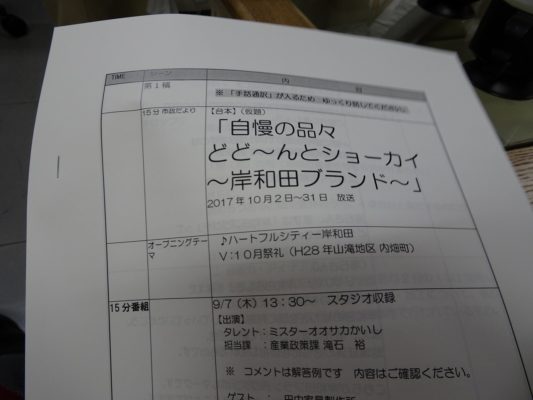 TIME シーン 内 容
第1稿 ※「手話通訳」が入るため ゆっくり話してください。
15分市政だより 【台本】(仮題)
「自慢の品々
どど～んとショーカイ
～岸和田ブランド～」
2017年10月2日～31日 放送
オープニングテーマ ♪ハートフルシティー岸和田
V:10月祭礼(H28年山滝地区 内畑町)
15分番組 9/7(木)13:30～ スタジオ収録
【出演】
タレント:ミスターオオサカかいし
担当課 :産業政策課 滝石 裕
※ コメントは解答例です 内容はご確認ください。
ゲスト :